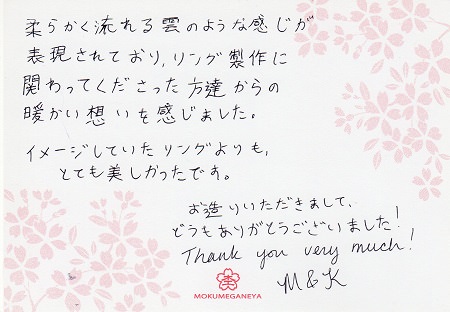 柔らかく流れる雲のような感じが
表現されており,リング製作に
関わってくださった方達からの
暖かい想いを感じました。
イメージしていたリングよりも,
とても美しかったです。
お造りいただきまして、
どうもありがとうございました!
Thank you very much!
M & K
MOKUMEGANEYA